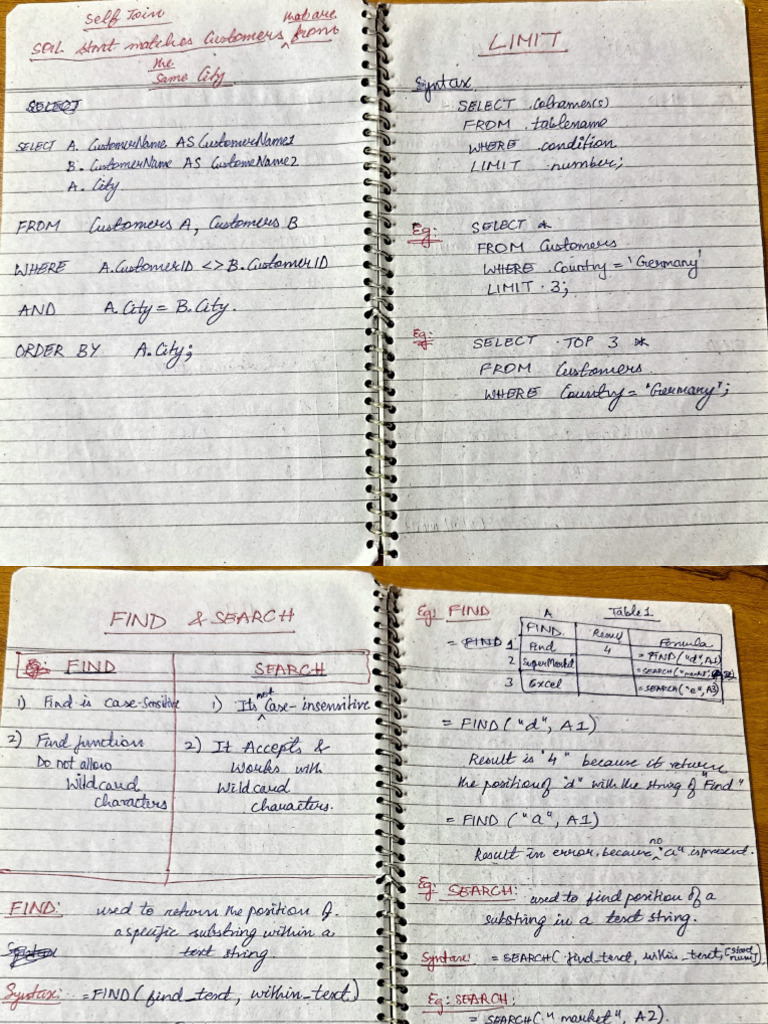 Self Join
that are
SQL stmt matches Customers ^ from
the
Same City
SELECT
SELECT A. CustomerName AS CustomerName1
B. CustomerName AS CustomeName2
A. City
FROM Customers A, Customers B
WHERE A.CustomerID <> B.CustomerID
AND A.City = B.City.
ORDER BY A.City;
LIMIT
Syntax
SELECT
FROM tablename
WHERE condition
LIMIT number;
Eg: SELECT *
FROM Customers
WHERE Country = 'Germany'
LIMIT 3;
Eg: SELECT TOP 3 *
FROM Customers
WHERE Country = 'Germany';
FIND & SEARCH
FIND SEARCH
1) Find is case-sensitive
2) Find function
Do not allow
Wildcard
characters
not
1) Its ^ Case-insensitive
2) It Accepts &
Works with
Wildcard
characters.
FIND: used to return the position of
a specific substring within a
text string.
Syntax: =FIND(find_text, within_text)
Eg: FIND
A Table 1
FIND. Result Formula
= FIND 1 Find 4 =FIND("d",A1)
2 SuperMarket =SEARCH("market",
3 Excel =SEARCH("e",A3)
= FIND("d", A1)
Result is "4" because it return
the position of "d" with the string of "Find"
= FIND ("a", A1)
no
Result in error, because ^ "a" is present.
Eg: SEARCH: used to find position of a
substring in a text string.
Syntax: = SEARCH( find_text, within_text, [start
num])
Eg: SEARCH:
= SEARCH(" market", A2).